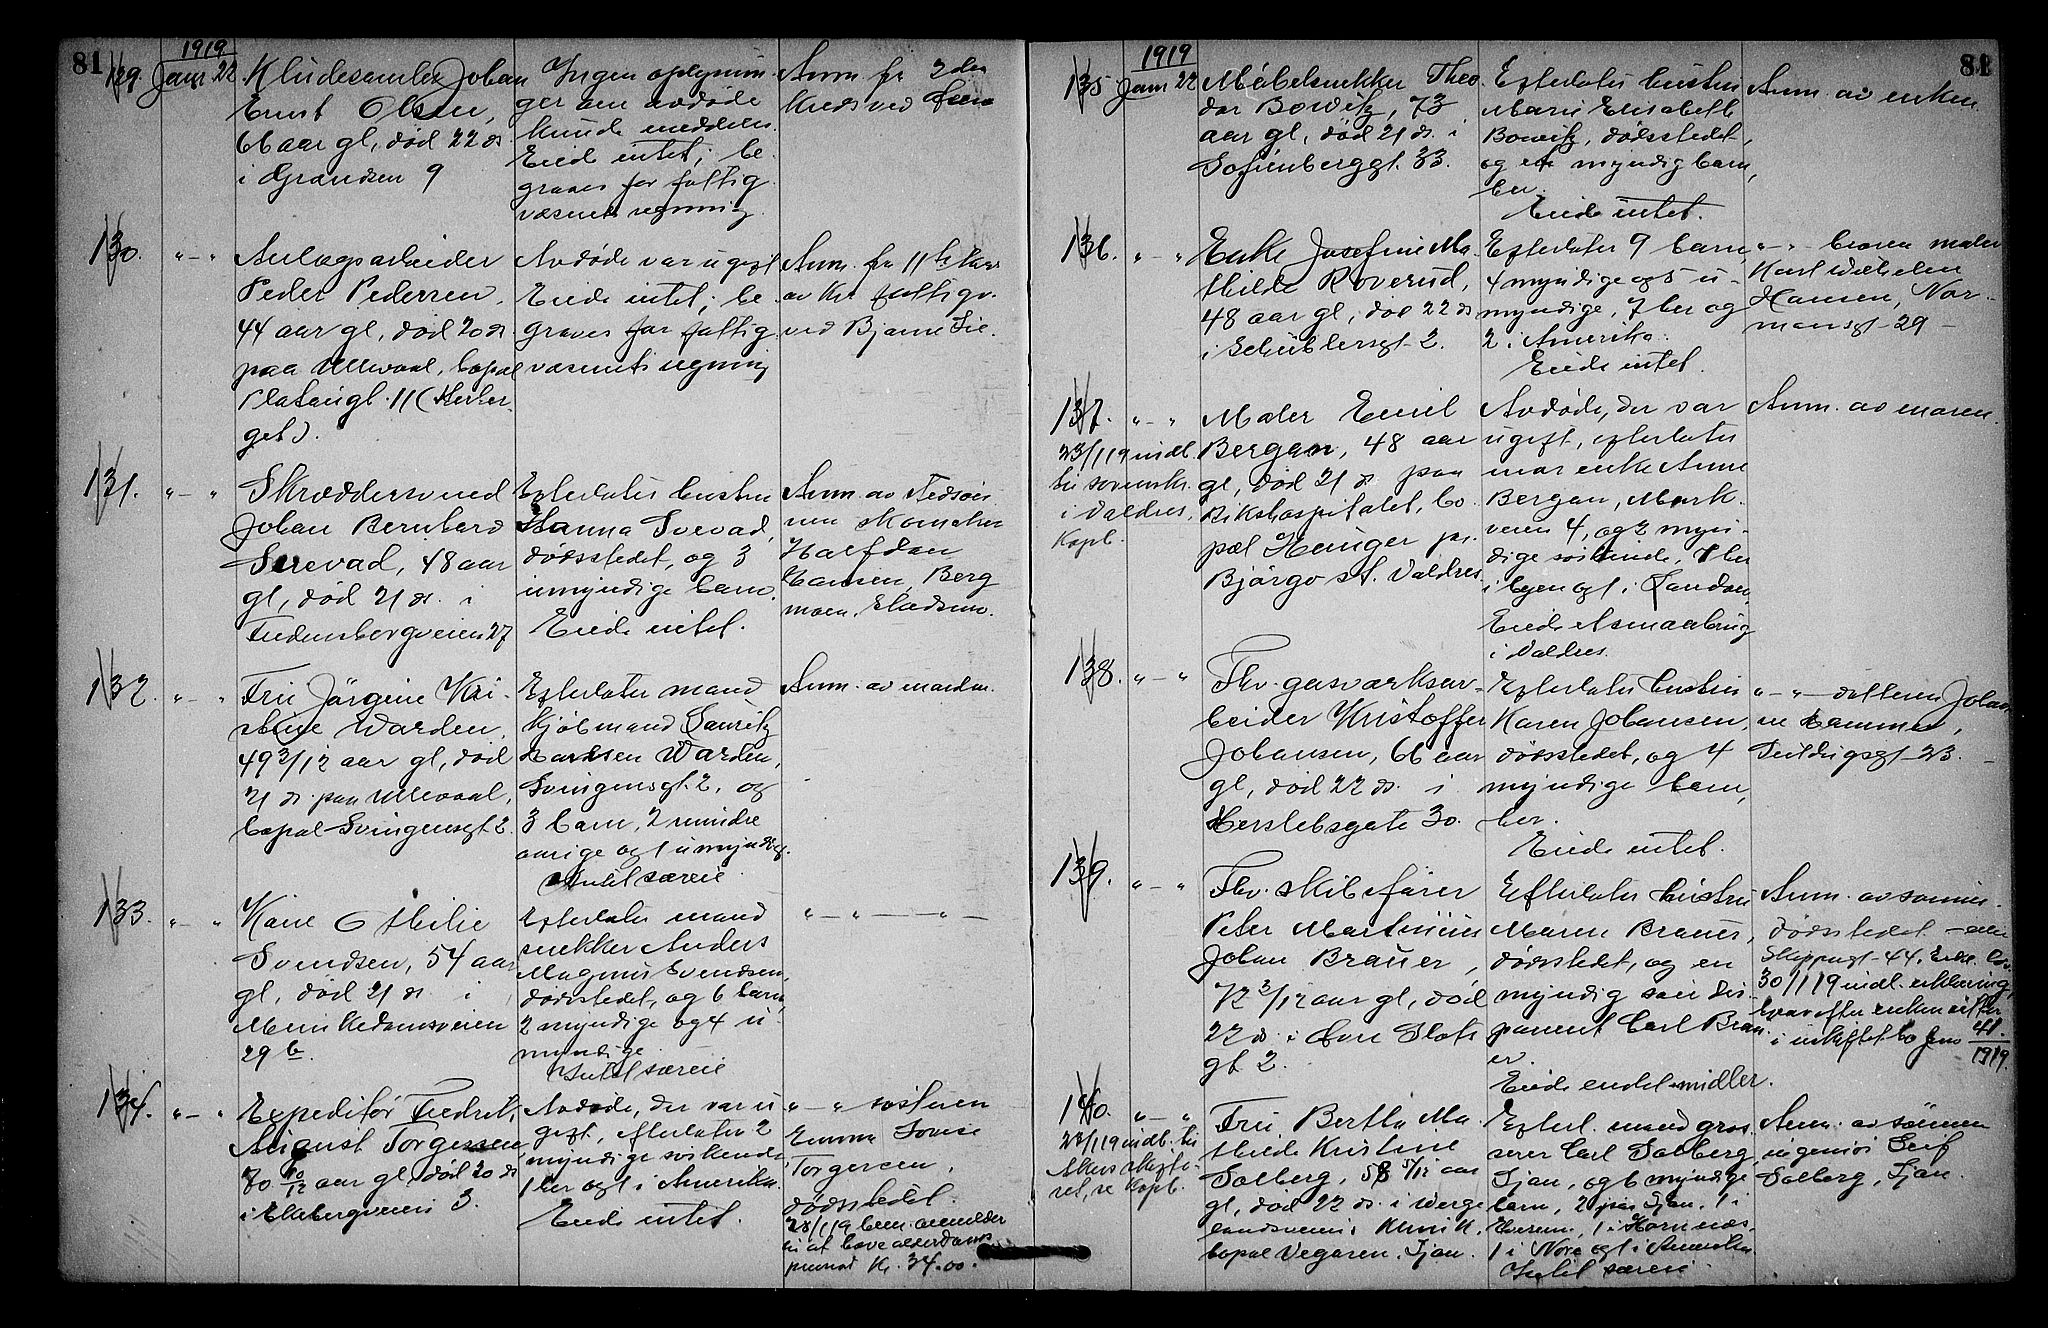 81
1919
129. Jan 22.
Kludesamler Johan
Ernst Olsen,
66 aar gl, död 22 ds
i Grændsen 9
Ingen oplysnin
ger om avdöde
kunde meddeles.
Eiede intet; be-
graves for fattig
væsenets regning.
Anm. fra 2den
Kreds ved
130. " - "
Anlægsarbeider
Peder Pedersen,
44 aar gl, död 20 ds.
paa Ullevaal, bopæl
Platousgt. 11 (Herber-
get).
Avdöde var ugift
Eiede intet; be-
graves for fattig
væsenets regning
Anm. fra 11te Kreds
av Kr. fattigv.
ved Bjarne Lie.
131. " - "
Skræddersvend
Johan Bernhard
Svevad, 48 aar
gl, död 21 ds. i
Fredensborgveien 27
Efterlater hustru
Hanna Svevad,
dödsstedet, og 3
umyndige barn.
Eiede intet.
Anm. av
skomaker
Halfdan
Hansen, Berg
moen,
132. " - "
Fru Jörgine Kri-
stine Warden,
49 3/12 aar gl, död
21 ds. paa Ullevaal,
bopæl Svingensgt. 2.
Efterlater mand
kjöbmand Lauritz
Warden,
Svingensgt. 2, og
3 barn, 2 mindre
aarige og 1 umyndig.
Intet særeie
Anm. av manden.
133. " - "
Kone Othilie
Svendsen, 54 aar
gl, död 21 ds. i
Munkedamsveien
29 b.
Efterlater mand
snekker Anders
Magnus Svendsen,
dödsstedet, og 6 barn,
2 myndige og 4 u-
myndige.
Intet særeie
" - " - " -
134. " - "
Expeditör Fredrik
August Torgersen,
70 10/12 aar gl, död 20 ds
i Ekebergveien 3.
Avdöde, der var u
gift, efterlater 2
myndige söskende,
1 her og 1 i Amerika.
Eiede intet.
" - " söstren
Emma Lovise
Torgersen,
dödsstedet.
28/1 19 anmelder
at have alderdoms
Kr. 34.00.
81
1919
135 Jan 22
Möbelsnekker Theo
dor Bowitz, 73
aar gl, död 21 ds. i
Sofienberggt. 33.
Efterlater hustru
Marie Elisabeth
Bowitz, dödsstedet,
og et myndig barn,
her.
Eiede intet.
Anm. av enken.
136. " - "
Enke Josefine Ma-
thilde Roverud,
48 aar gl, död 22 ds
i Schüblersgt. 2.
Efterlater 9 barn
4 myndige og 5 u-
myndige, 7 her og
2 i Amerika.
Eiede intet.
" - " broren maler
Karl Wilhelm
Hansen, Nor-
mansgt. 29 -
137. " - "
23/1 19 indb.
til sorenskr.
i Valdres.
Kopb.
Maler Emil
Bergan, 48 aar
gl, död 21 ds. paa
Rikshospitalet, bo
pæl Heninger pr.
Bjørgo st. Valdres
Avdöde, der var
ugift, efterlater
mor enke Anne
Bergan, Mark-
veien 4, og 2 myn-
dige söskende, 1 her
i byen og 1 i Randsm.
Eiede et smaabruk
i Valdres.
Anm. av moren.
138. " - "
Fhv. gasverksar-
beider Kristoffer
Johansen, 66 aar
gl, död 22 ds. i
Herslebsgate 30.
Efterlater hustru
Karen Johansen,
dödsstedet, og 4
myndige barn,
her.
Eiede intet.
" - " - datteren Johan
ne Hammer,
Seilduksgt. 23. -
139. " - "
Fhv. skibsförer
Peter Martinius
Johan Brauer,
72 3/12 aar gl, död
22 ds. i Övre Slots
gt 2.
Efterlater hustru
Maren Brauer,
dödsstedet, og en
myndig sön dis-
ponent Carl Brau
er.
Eiede endel midler.
Anm. av sönnen.
dödsstedet -
Skippergt. 44.
30/1 19 indl. erklæring
hvorefter enken sitter
i uskiftet bo Jnr 41.
1919.
140. " - "
28/1 19 indb. til
Akers skifte
ret, se Kopb.
Fru Bertha Ma
thilde Kristine
Solberg, 58 5/12 aar
gl, död 22 ds. i Werge
landsveiens klinik.
bopæl Vegaren, Ljan.
Efterl. mand gros-
serer Carl Solberg,
Ljan, og 6 myndige
barn, 2 paa Ljan, 1 i
1 i Hornnæs,
1 i Nore og 1 i Amerika
Intet særeie
Anm. av sönnen
ingeniör Leif
Solberg, Ljan.